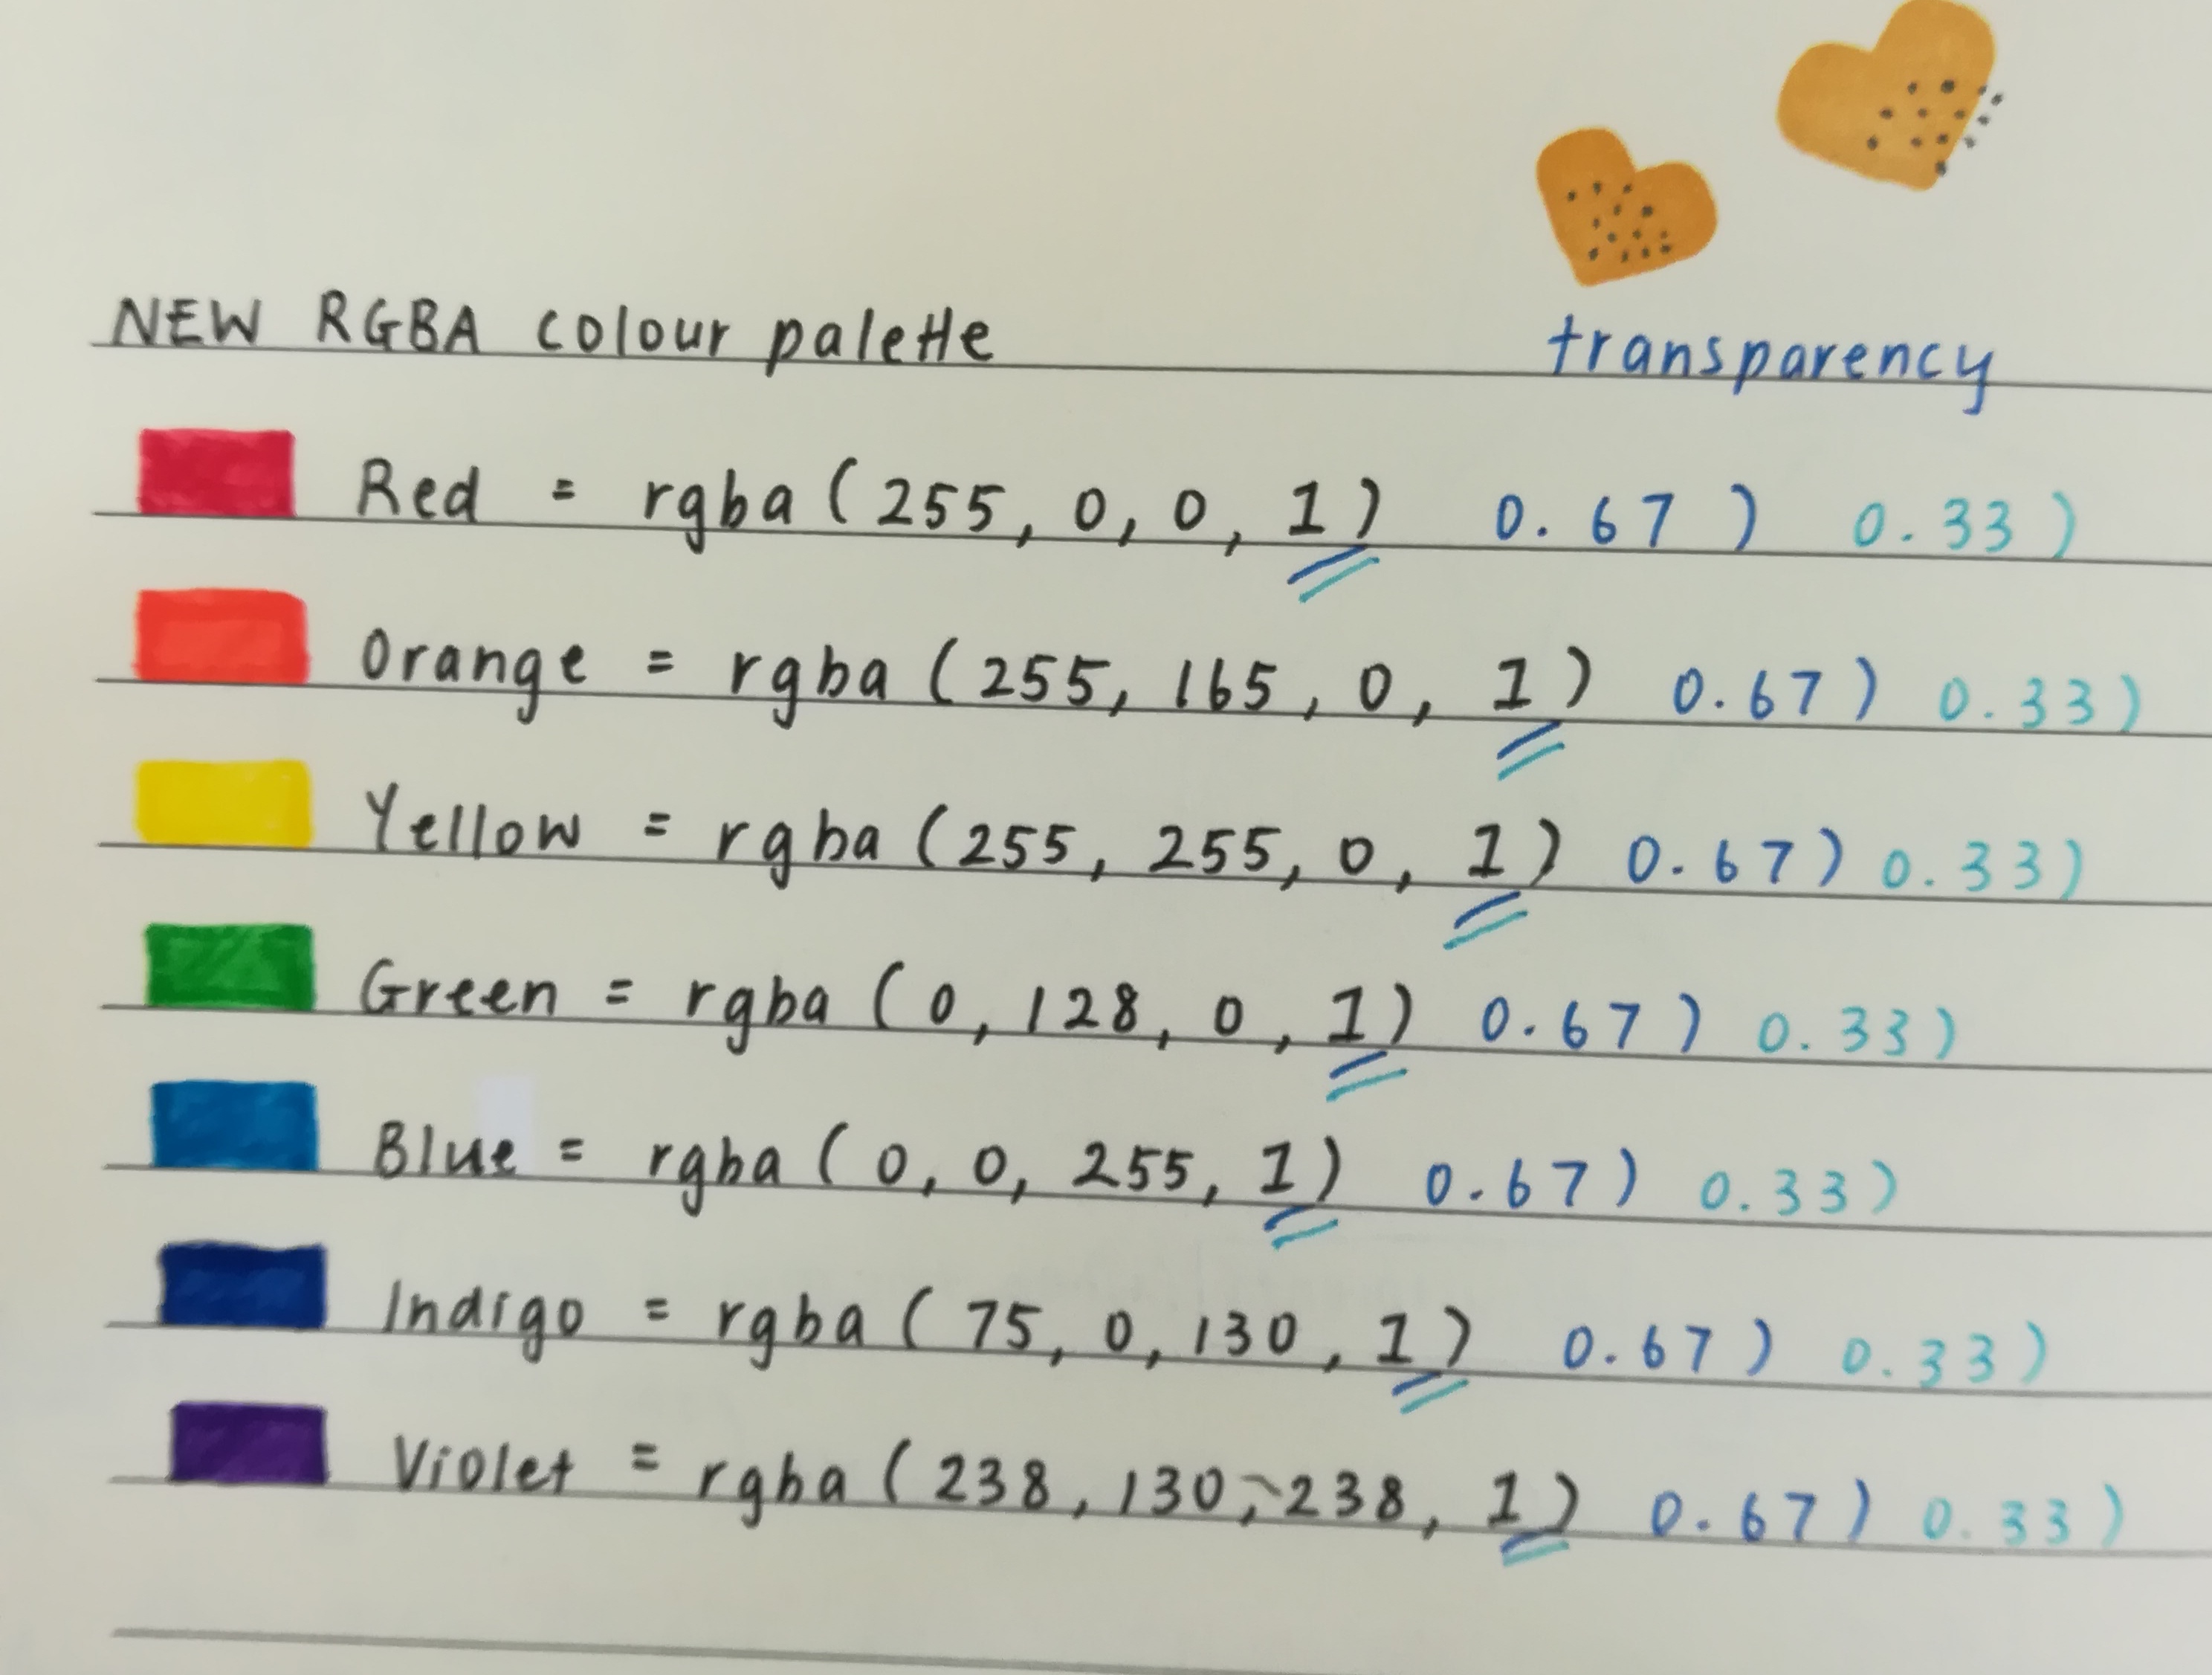 NEW RGBA colour palette transparency
Red = rgba (255, 0, 0, 1) 0.67) 0.33)
Orange = rgba (255, 165, 0, 1) 0.67) 0.33)
Yellow = rgba (255, 255, 0, 1) 0.67) 0.33)
Green = rgba (0, 128, 0, 1) 0.67) 0.33)
Blue = rgba (0, 0, 255, 1) 0.67) 0.33)
Indigo = rgba (75, 0, 130, 1) 0.67) 0.33)
Violet = rgba (238, 130, 238, 1) 0.67) 0.33)